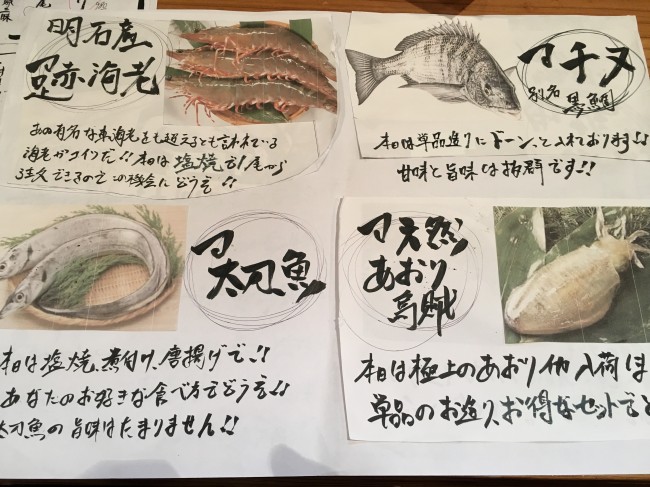 明石産
足赤海老
あの有名な車海老をも超えるとも言われている
海老がコイツだ!!本日は塩焼で1尾から
注文できるのでこの機会にどうぞ!!
マチヌ
別名
黒鯛
本日は単品造りにドーンと入れております!!
甘味と旨味は抜群です!!
太刀魚
本日は塩焼、煮付け、唐揚げで!!
あなたのお好きな食べ方でどうぞ!!
太刀魚の旨味はたまりません!!
天然
あおり
烏賊
本日は極上のあおりイカ入荷
単品のお造り、お得なセットで